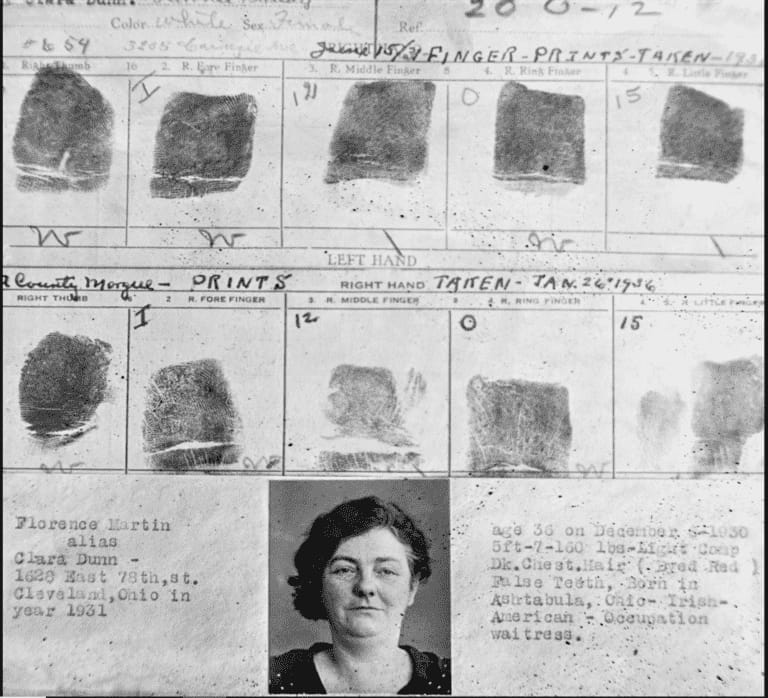 Clara Dunn.
Color White Sex Female Ref.
20 0-12
#6 54 3205 Carnegie Ave
FINGER-PRINTS-TAKEN-193
Right Thumb 16 2. R. Fore Finger 3. R. Middle Finger 8 4. R. Ring Finger 4 5. R. Little Finger
I 0 15
W W \ W \
LEFT HAND
County Morgue- PRINTS RIGHT HAND TAKEN- JAN. 26-1936
RIGHT THUMB 2 R. FORE FINGER 3. R. MIDDLE FINGER 8 4. R. RING FINGER 4 5. R LITTLE FINGER
I 12 0 15
W W W
Florence Martin
alias
Clara Dunn -
1628 East 78th,st.
Cleveland,Ohio in
year 1931
age 36 on December -1930
5ft-7-160 lbs-Light Comp
Dk.Chest.Hair ( Dyed Red )
False Teeth, Born in
Ashtabula, Ohio- Irish-
American - Occupation
waitress.